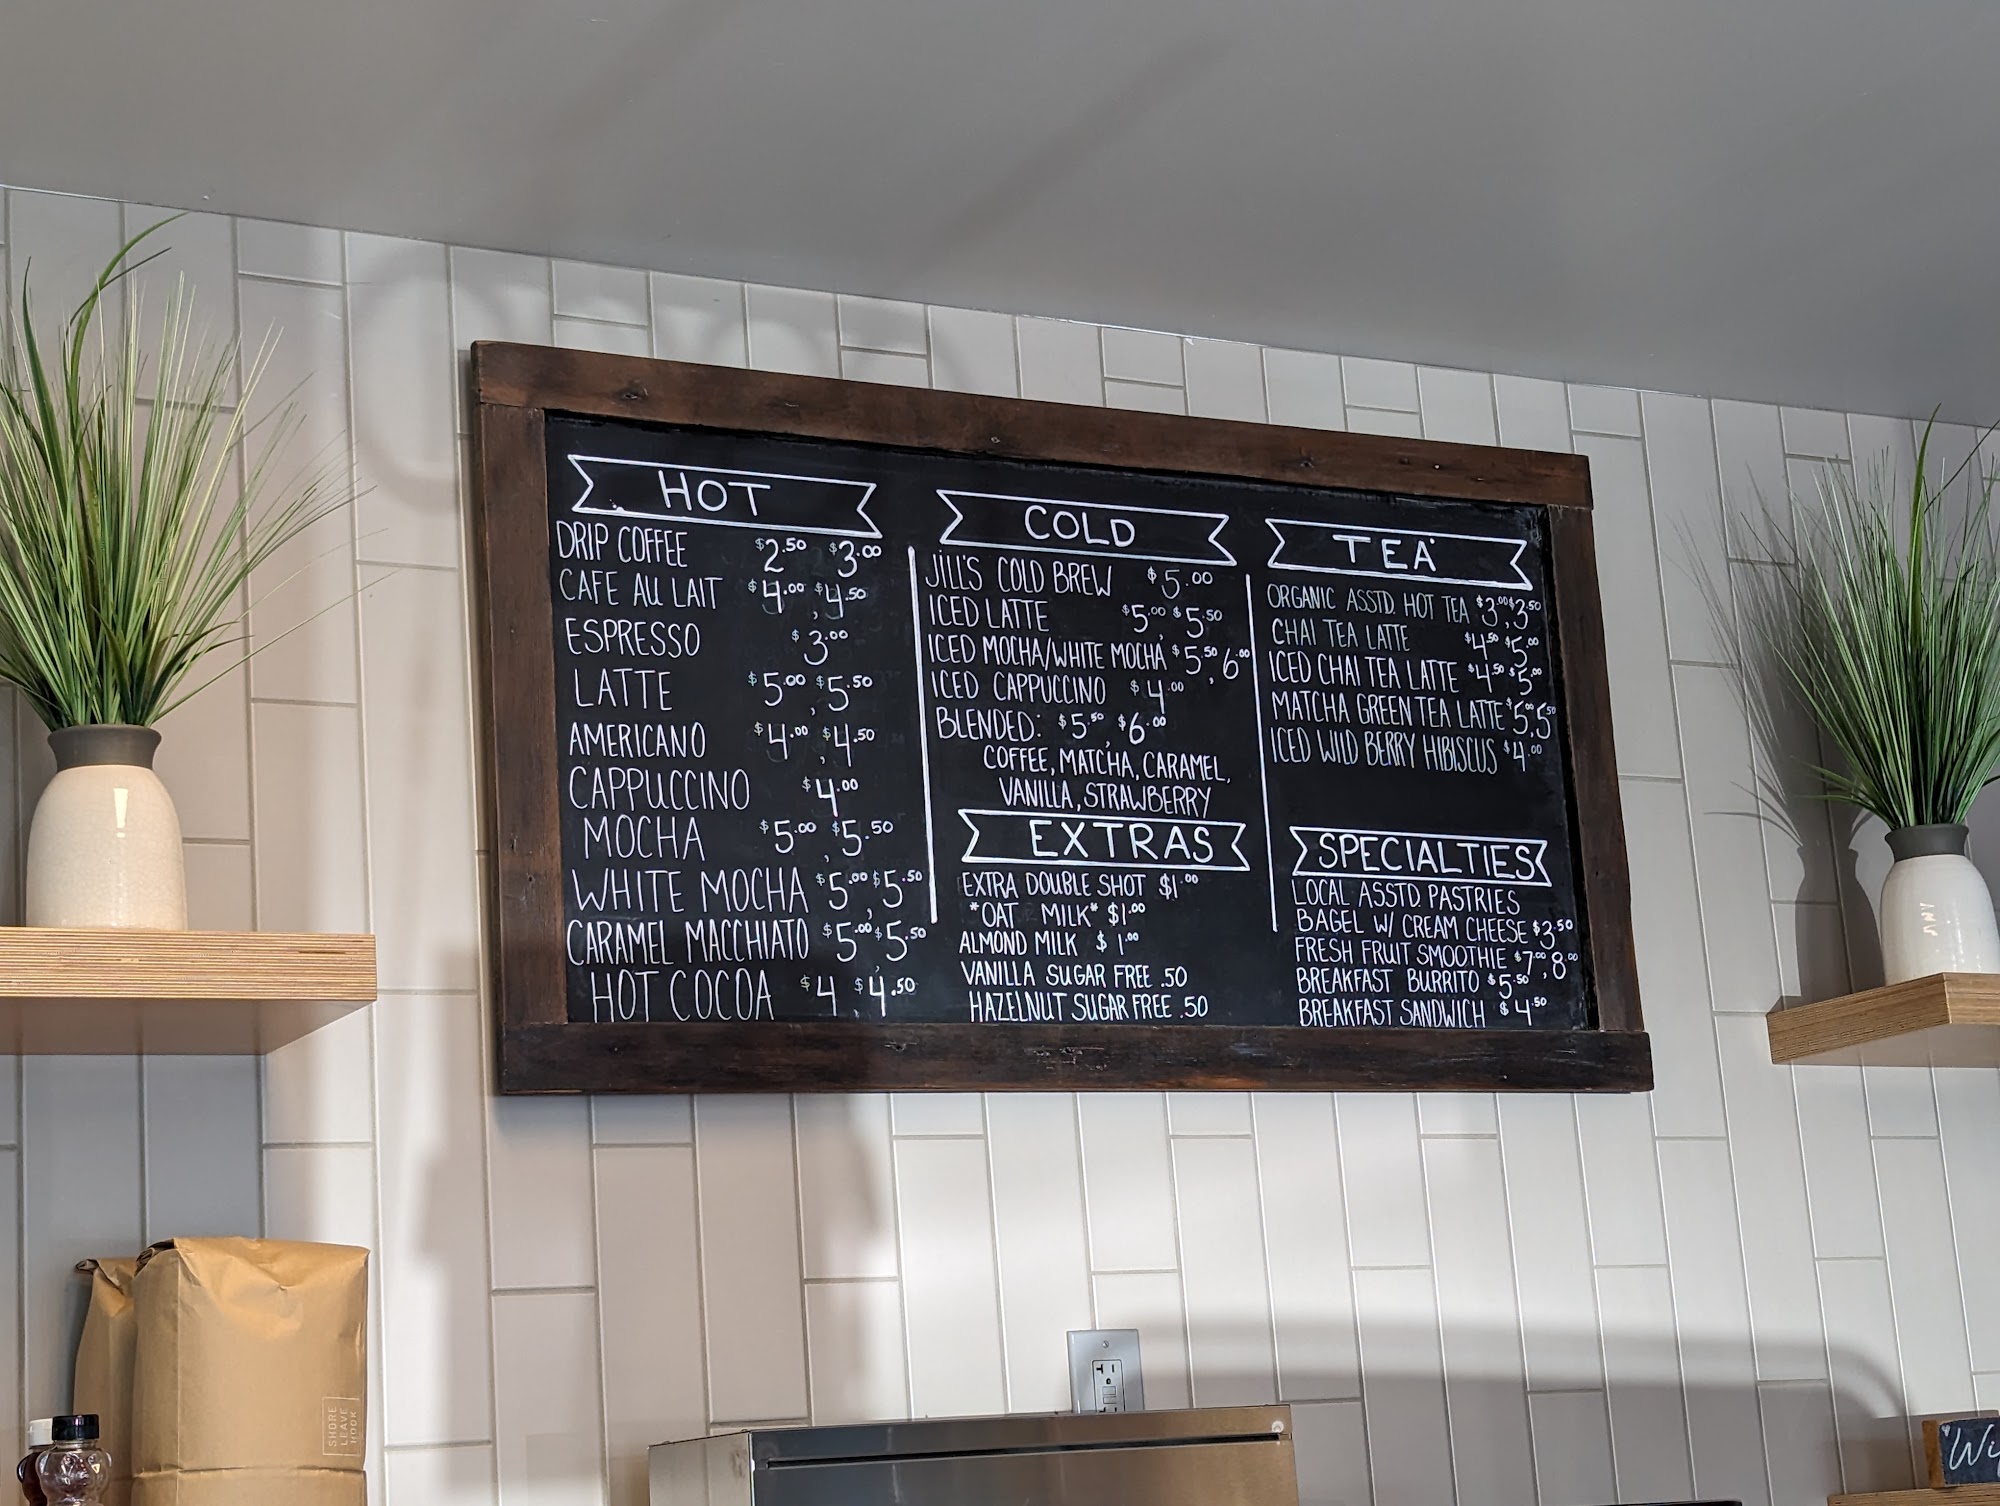 HOT
DRIP COFFEE $2.50 $3.00
CAFE AU LAIT $4.00, $4.50
ESPRESSO $3.00
LATTE $5.00, $5.50
AMERICANO $4.00, $4.50
CAPPUCCINO $4.00
MOCHA $5.00, $5.50
WHITE MOCHA $5.00, $5.50
CARAMEL MACCHIATO $5.00, $5.50
HOT COCOA $4 $4.50
COLD
JILL'S COLD BREW $5.00
ICED LATTE $5.00, $5.50
ICED MOCHA/WHITE MOCHA $5.50, 6.00
ICED CAPPUCCINO $4.00
BLENDED: $5.50, $6.00
COFFEE, MATCHA, CARAMEL,
VANILLA, STRAWBERRY
EXTRAS
EXTRA DOUBLE SHOT $1.00
*OAT MILK* $1.00
ALMOND MILK $1.00
VANILLA SUGAR FREE .50
HAZELNUT SUGAR FREE .50
TEA
ORGANIC ASSTD. HOT TEA $3.00, $3.50
CHAI TEA LATTE $4.50, $5.00
ICED CHAI TEA LATTE $4.50, $5.00
MATCHA GREEN TEA LATTE $5.00, 5.50
ICED WILD BERRY HIBISCUS $4.00
SPECIALTIES
LOCAL ASSTD. PASTRIES
BAGEL W/ CREAM CHEESE $3.50
FRESH FRUIT SMOOTHIE $7.00, 8.00
BREAKFAST BURRITO $5.50
BREAKFAST SANDWICH $4.50
SHORE
LEAVE
HOOK